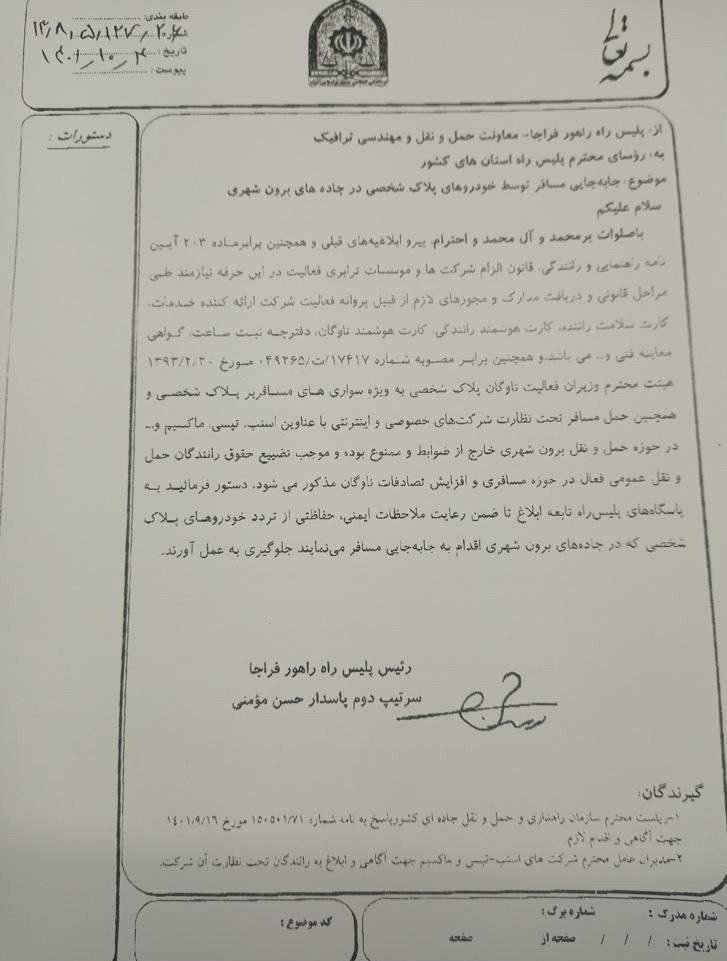 بسمه تعالی
طبقه بندی:
شماره:
تاریخ: ۱۴۰۱/۱۰/۴
پیوست:
دستورات:
از: پلیس راه راهور فراجا- معاونت حمل و نقل و مهندسی ترافیک
به: رؤسای محترم پلیس راه استان های کشور
موضوع: جابه‌جایی مسافر توسط خودروهای پلاک شخصی در جاده های برون شهری
سلام علیکم
باصلوات بر محمد و آل محمد و احترام، پیرو ابلاغیه‌های قبلی و همچنین برابر ماده ۲۰۳ آیین
نامه راهنمایی و رانندگی، قانون الزام شرکت ها و موسسات ترابری فعالیت در این حرفه نیازمند طی
مراحل قانونی و دریافت مدارک و مجوزهای لازم از قبیل پروانه فعالیت شرکت ارائه کننده خدمات،
کارت سلامت راننده، کارت هوشمند رانندگی، کارت هوشمند ناوگان، دفترچه ثبت ساعت، گواهی
معاینه فنی و... می باشد.و همچنین برابر مصوبه شماره ۱۷۴۱۷/ت/۴۹۲۶۵ه مورخ ۱۳۹۳/۲/۲۰
هیئت محترم وزیران فعالیت ناوگان پلاک شخصی به ویژه سواری های مسافربر پلاک شخصی و
همچنین حمل مسافر تحت نظارت شرکت‌های خصوصی و اینترنتی با عناوین اسنپ، تپسی، ماکسیم و...
در حوزه حمل و نقل برون شهری خارج از ضوابط و ممنوع بوده و موجب تضییع حقوق رانندگان حمل
و نقل عمومی فعال در حوزه مسافری و افزایش تصادفات ناوگان مذکور می شود. دستور فرمائید به
پاسگاه‌های پلیس‌راه تابعه ابلاغ تا ضمن رعایت ملاحظات ایمنی، حفاظتی از تردد خودروهای پلاک
شخصی که در جاده‌های برون شهری اقدام به جابه‌جایی مسافر می‌نمایند جلوگیری به عمل آورند.
رئیس پلیس راه راهور فراجا
سرتیپ دوم پاسدار حسن مؤمنی
گیرندگان:
۱-ریاست محترم سازمان راهداری و حمل و نقل جاده ای کشورپاسخ به نامه شماره ۱۵۰۵۰۱/۷۱ مورخ ۱۴۰۱/۹/۱۶
جهت آگاهی و اقدام لازم
۲-مدیران عامل محترم شرکت های اسنپ-تپس و ماکسیم جهت آگاهی و ابلاغ به رانندگان تحت نظارت آن شرکت.
شماره مدرک: شماره برگ:
تاریخ ثبت: / / / صفحه از صفحه
کد موضوع: